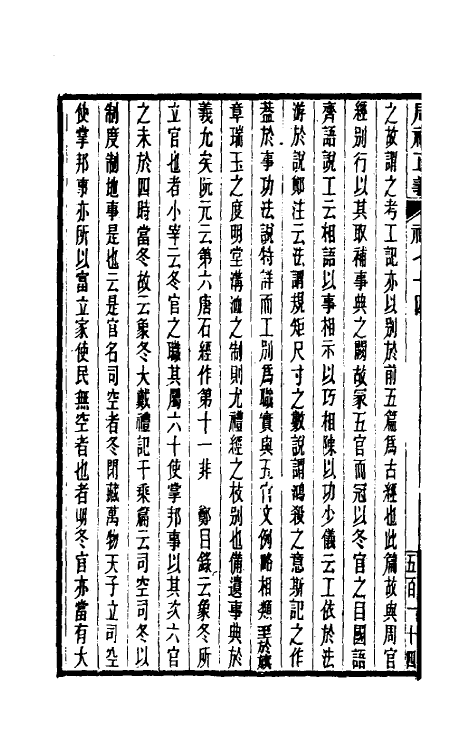 周禮正義 禮七十四 五百一十四
之故謂之考工記亦以別於前五篇爲古經也此篇故與周官
經別行以其取補事典之闕故冡五官而冠以冬官之目國語
齊語說工云相語以事相示以巧相陳以功少儀云工依於法
游於說鄭注云法謂規矩尺寸之數說謂鴻殺之意斯記之作
蓋於事功法說特詳而工別爲職實與五官文例略相類至於旗
章瑞玉之度明堂溝洫之制則尤禮經之枝別也備遺事典於
義允矣阮元云第六唐石經作第十一非 鄭目錄云象冬所
立官也者小宰云冬官之職其屬六十使掌邦事以其次六官
之末於四時當冬故云象冬大戴禮記千乘篇云司空司冬以
制度制地事是也云是官名司空者冬閉藏萬物天子立司空
使掌邦事亦所以富立家使民無空者也者明冬官亦當有大